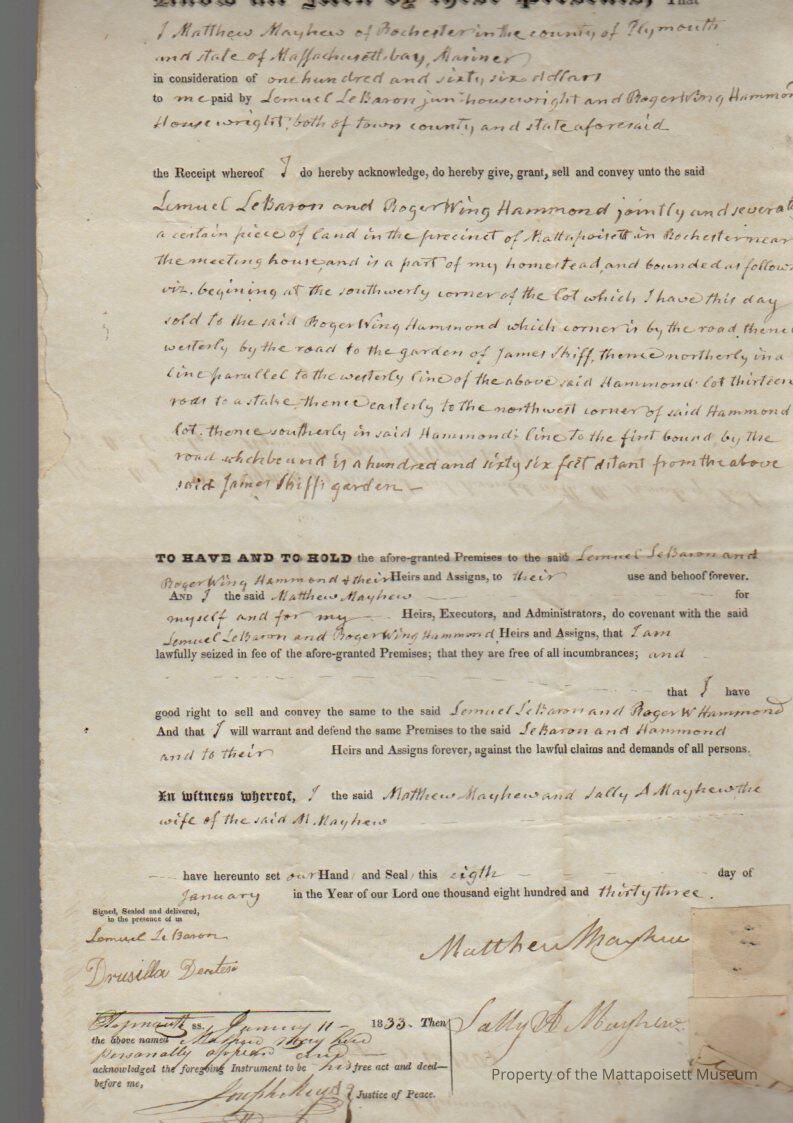 Know all Men by these Presents, That
I Matthew Mayhew of Rochester in the county of Plymouth
and state of Massachusetts bay, Mariner
in consideration of one hundred and sixty six dollars
to me paid by Lemuel LeBaron jun housewright and Roger Wing Hammon
Housewright; both of town county, and state aforesaid
the Receipt whereof I do hereby acknowledge, do hereby give, grant, sell and convey unto the said
Lemuel LeBaron and Roger Wing Hammond jointly and several
a certain piece of land in the precinct of Mattapoisett in Rochester near
the meeting house, and is a part of my homestead, and bounded as follow
viz. begining at the southwerly corner of the lot which I have this day
sold to the said Roger Wing Hammond which corner is by the road, thence
westerly by the road to the garden of James Shiff, thence northerly in a
line parallel to the westerly line of the above said Hammond lot thirteen
rods to a stake thence easterly to the northwest corner of said Hammond
lot. thence southerly in said Hammond's line to the first bound, by the
road which bound is a hundred and sixty six feet distant from the above
said James Shiff's garden —
TO HAVE AND TO HOLD the afore-granted Premises to the said Lemuel LeBaron and
Roger Wing Hammond & their Heirs and Assigns, to their use and behoof forever.
AND I the said Matthew Mayhew for
myself and for my Heirs, Executors, and Administrators, do covenant with the said
Lemuel LeBaron and Roger Wing Hammond Heirs and Assigns, that I am
lawfully seized in fee of the afore-granted Premises; that they are free of all incumbrances; and
that I have
good right to sell and convey the same to the said Lemuel LeBaron and Roger W Hammond
And that I will warrant and defend the same Premises to the said LeBaron and Hammond
and to their Heirs and Assigns forever, against the lawful claims and demands of all persons.
In witness whereof, I the said Matthew Mayhew and Sally A Mayhew the
wife of the said M. Mayhew
have hereunto set our Hand and Seal this eigth day of
January in the Year of our Lord one thousand eight hundred and thirty three.
Signed, Sealed and delivered,
in the presence of us
Lemuel LeBaron
Drusilla
Matthew Mayhew
Sally A Mayhew
Plymouth ss. January 11 - 1833. Then
the above named Matthew Mayhew
personally appeared and
acknowledged the foregoing Instrument to be his free act and deed—
before me,
Joseph Justice of Peace.
Property of the Mattapoisett Museum